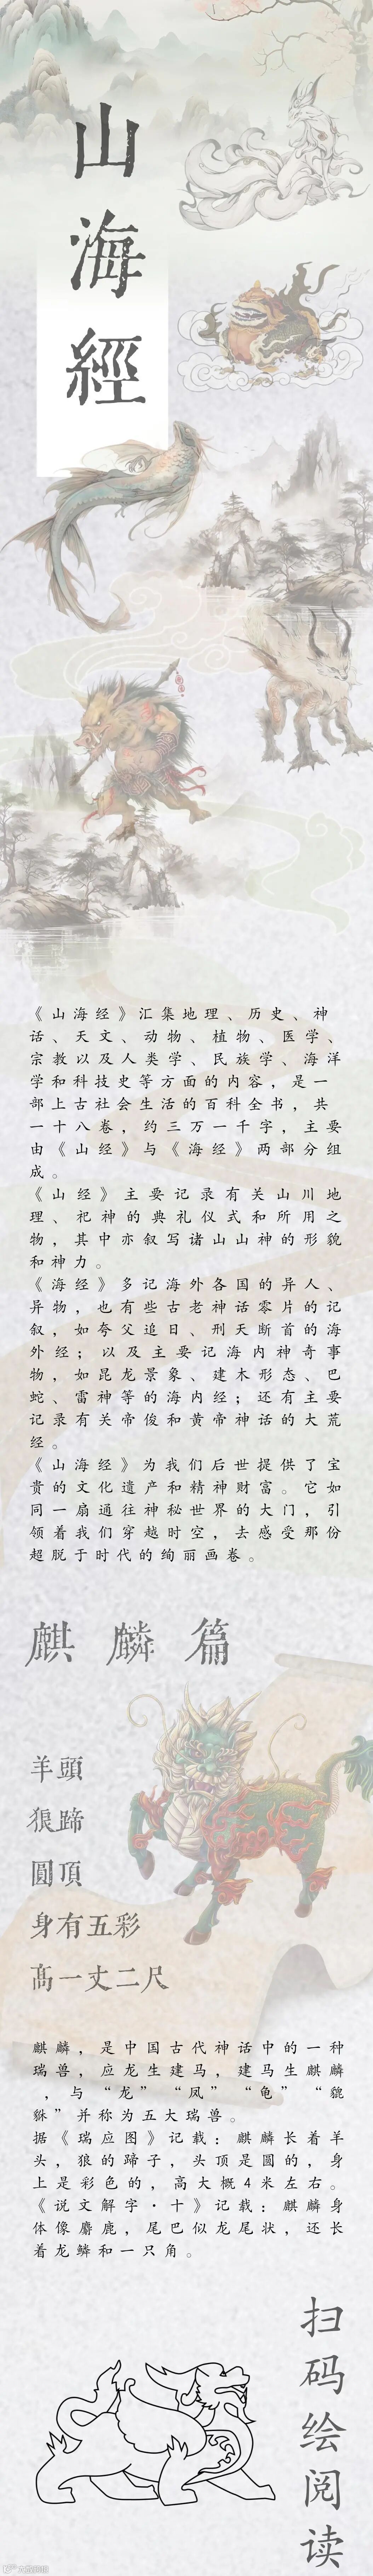 山
海
經
《山海经》汇集地理、历史、神
话、天文、动物、植物、医学、
宗教以及人类学、民族学、海洋
学和科技史等方面的内容，是一
部上古社会生活的百科全书，共
一十八卷，约三万一千字，主要
由《山经》与《海经》两部分组
成。
《山经》主要记录有关山川地
理、祀神的典礼仪式和所用之
物，其中亦叙写诸山山神的形貌
和神力。
《海经》多记海外各国的异人、
异物，也有些古老神话零片的记
叙，如夸父追日、刑天断首的海
外经；以及主要记海内神奇事
物，如昆龙景象、建木形态、巴
蛇、雷神等的海内经；还有主要
记录有关帝俊和黄帝神话的大荒
经。
《山海经》为我们后世提供了宝
贵的文化遗产和精神财富。它如
同一扇通往神秘世界的大门，引
领着我们穿越时空，去感受那份
超脱于时代的绚丽画卷。
麒麟篇
羊頭
狼蹄
圓頂
身有五彩
高一丈二尺
麒麟，是中国古代神话中的一种
瑞兽，应龙生建马，建马生麒麟
，与“龙”“凤”“龟”“貔
貅”并称为五大瑞兽。
据《瑞应图》记载：麒麟长着羊
头，狼的蹄子，头顶是圆的，身
上是彩色的，高大概4米左右。
《说文解字·十》记载：麒麟身
体像麝鹿，尾巴似龙尾状，还长
着龙鳞和一只角。
扫
码
绘
阅
读